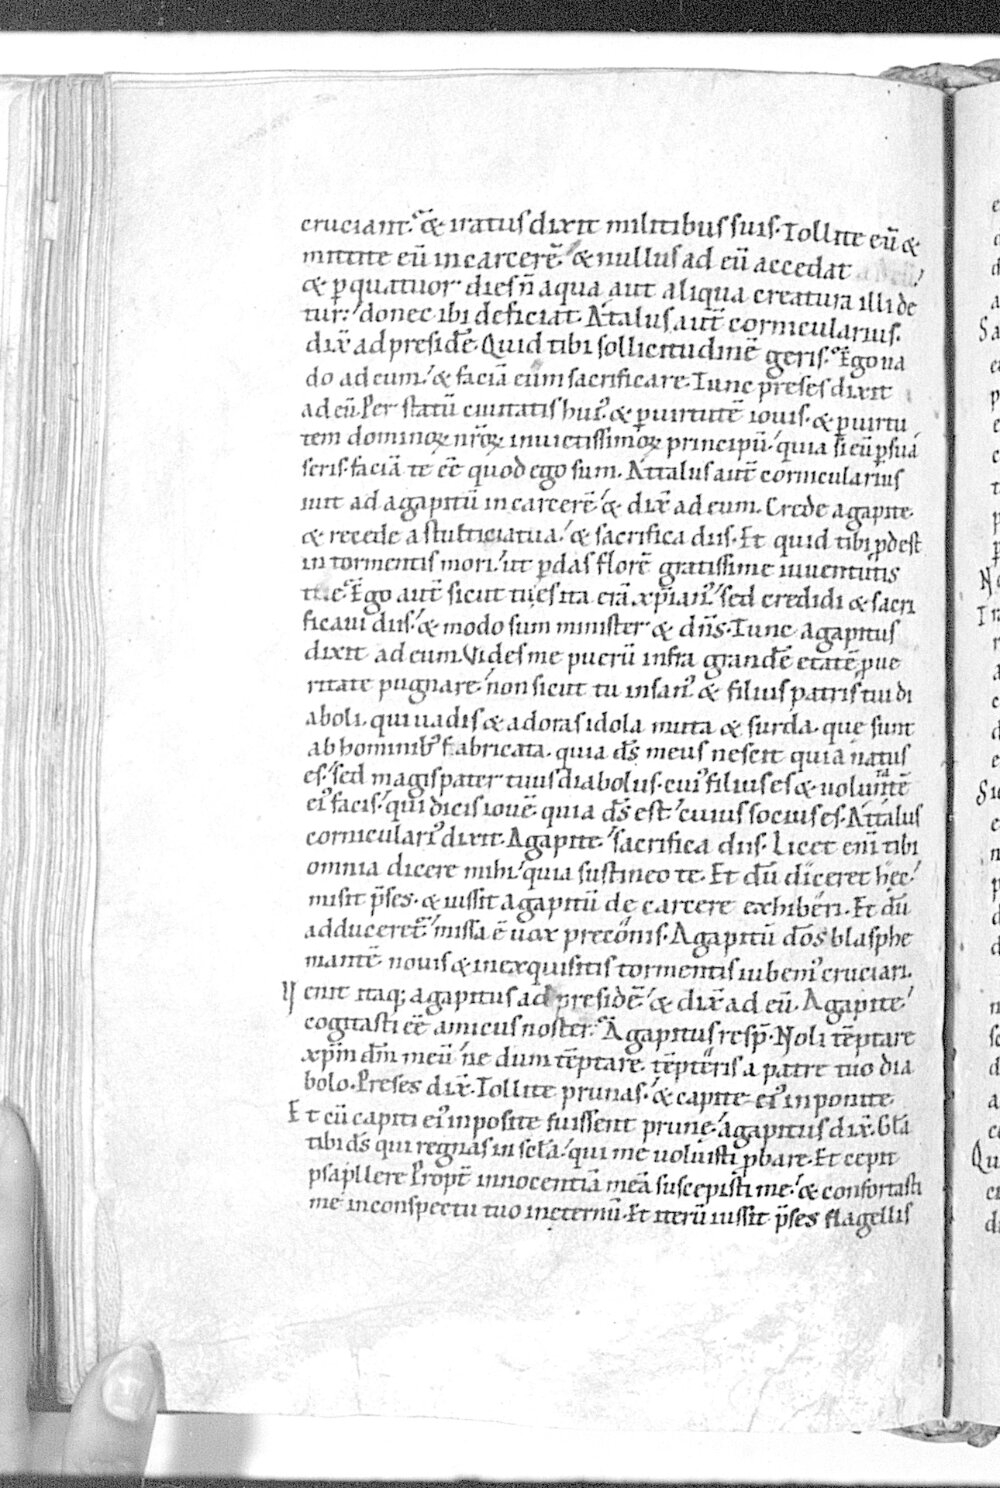 cruciant᷑. & iratus dixit militibus suis. Tollite eū &
mittite eū in carcerē. & nullus ad eū accedat
& p̱ quatuor dies n̄ aqua aut aliqua creatura illi de
tur. donec ibi deficiat. Attalus aut̄ cornicularius.
dix̄ ad presidē. Quid tibi sollicitudinē geris. Ego ua
do ad eum. & faciā eum sacrificare. Tunc preses dixit
ad eū. Per statū ciuitatis hui᷒. & p̱ uirtutē iouis. & p̱ uirtu
tem dominoꝝ nr̄oꝝ inuictissimoꝝ principū. quia si eū p̱sua
seris. faciā te eē quod ego sum. Attalus aut̄ cornicularius
iuit ad agapitū in carcerē. & dix̄ ad eum. Crede agapite.
& recede a stultitia tua. & sacrifica diis. Et quid tibi p̱dest
in tormentis mori. ut p̱das florē gratissime iuuentutis
tue. Ego aut̄ sicut tu es ita erā xp̄ian᷒. sed credidi & sacri
ficaui diis. & modo sum minister & dn̄s. Tunc agapitus
dixit ad eum. Vides me puerū infra grandē etatē pue
ritate pugnare. non sicut tu insan᷒ & filius patris tui di
aboli. qui uadis & adoras idola muta & surda. que sunt
ab hominib᷒ fabricata. quia ds̄ meus nescit quia natus
es. sed magis pater tuus diabolus. cui᷒ filius es & uoluntatē
ei᷒ facis. qui dicis iouē quia ds̄ est. cuius socius es. Attalus
corniculari᷒ dixit. Agapite. sacrifica diis. Licet eni tibi
omnia dicere mihi. quia sustineo te. Et dū diceret hec.
misit p̄ses. & iussit agapitū de carcere exhiberi. Et dū
adduceret᷑. missa ē uox preconis. Agapitū deos blasphe
mantē nouis & inexquisitis tormentis iubem᷒ cruciari.
Venit itaq; agapitus ad presidē. & dix̄ ad eū. Agapite.
cogitasti eē amicus noster. Agapitus resp̄. Noli tēptare
xp̄m dm̄ meū. ne dum tēptare. tēpteris a patre tuo dia
bolo. Preses dix̄. Tollite prunas. & capite ei᷒ inponite.
Et cū capiti ei᷒ inposite fuissent prune. agapitus dix̄. Gla
tibi ds̄ qui regnas in scla. qui me uoluisti p̱bare. Et cepit
psapllere. Propt̄ innocentiā meā suscepisti me. & confortasti
me in conspectu tuo in eternū. Et iterū iussit p̄ses flagellis